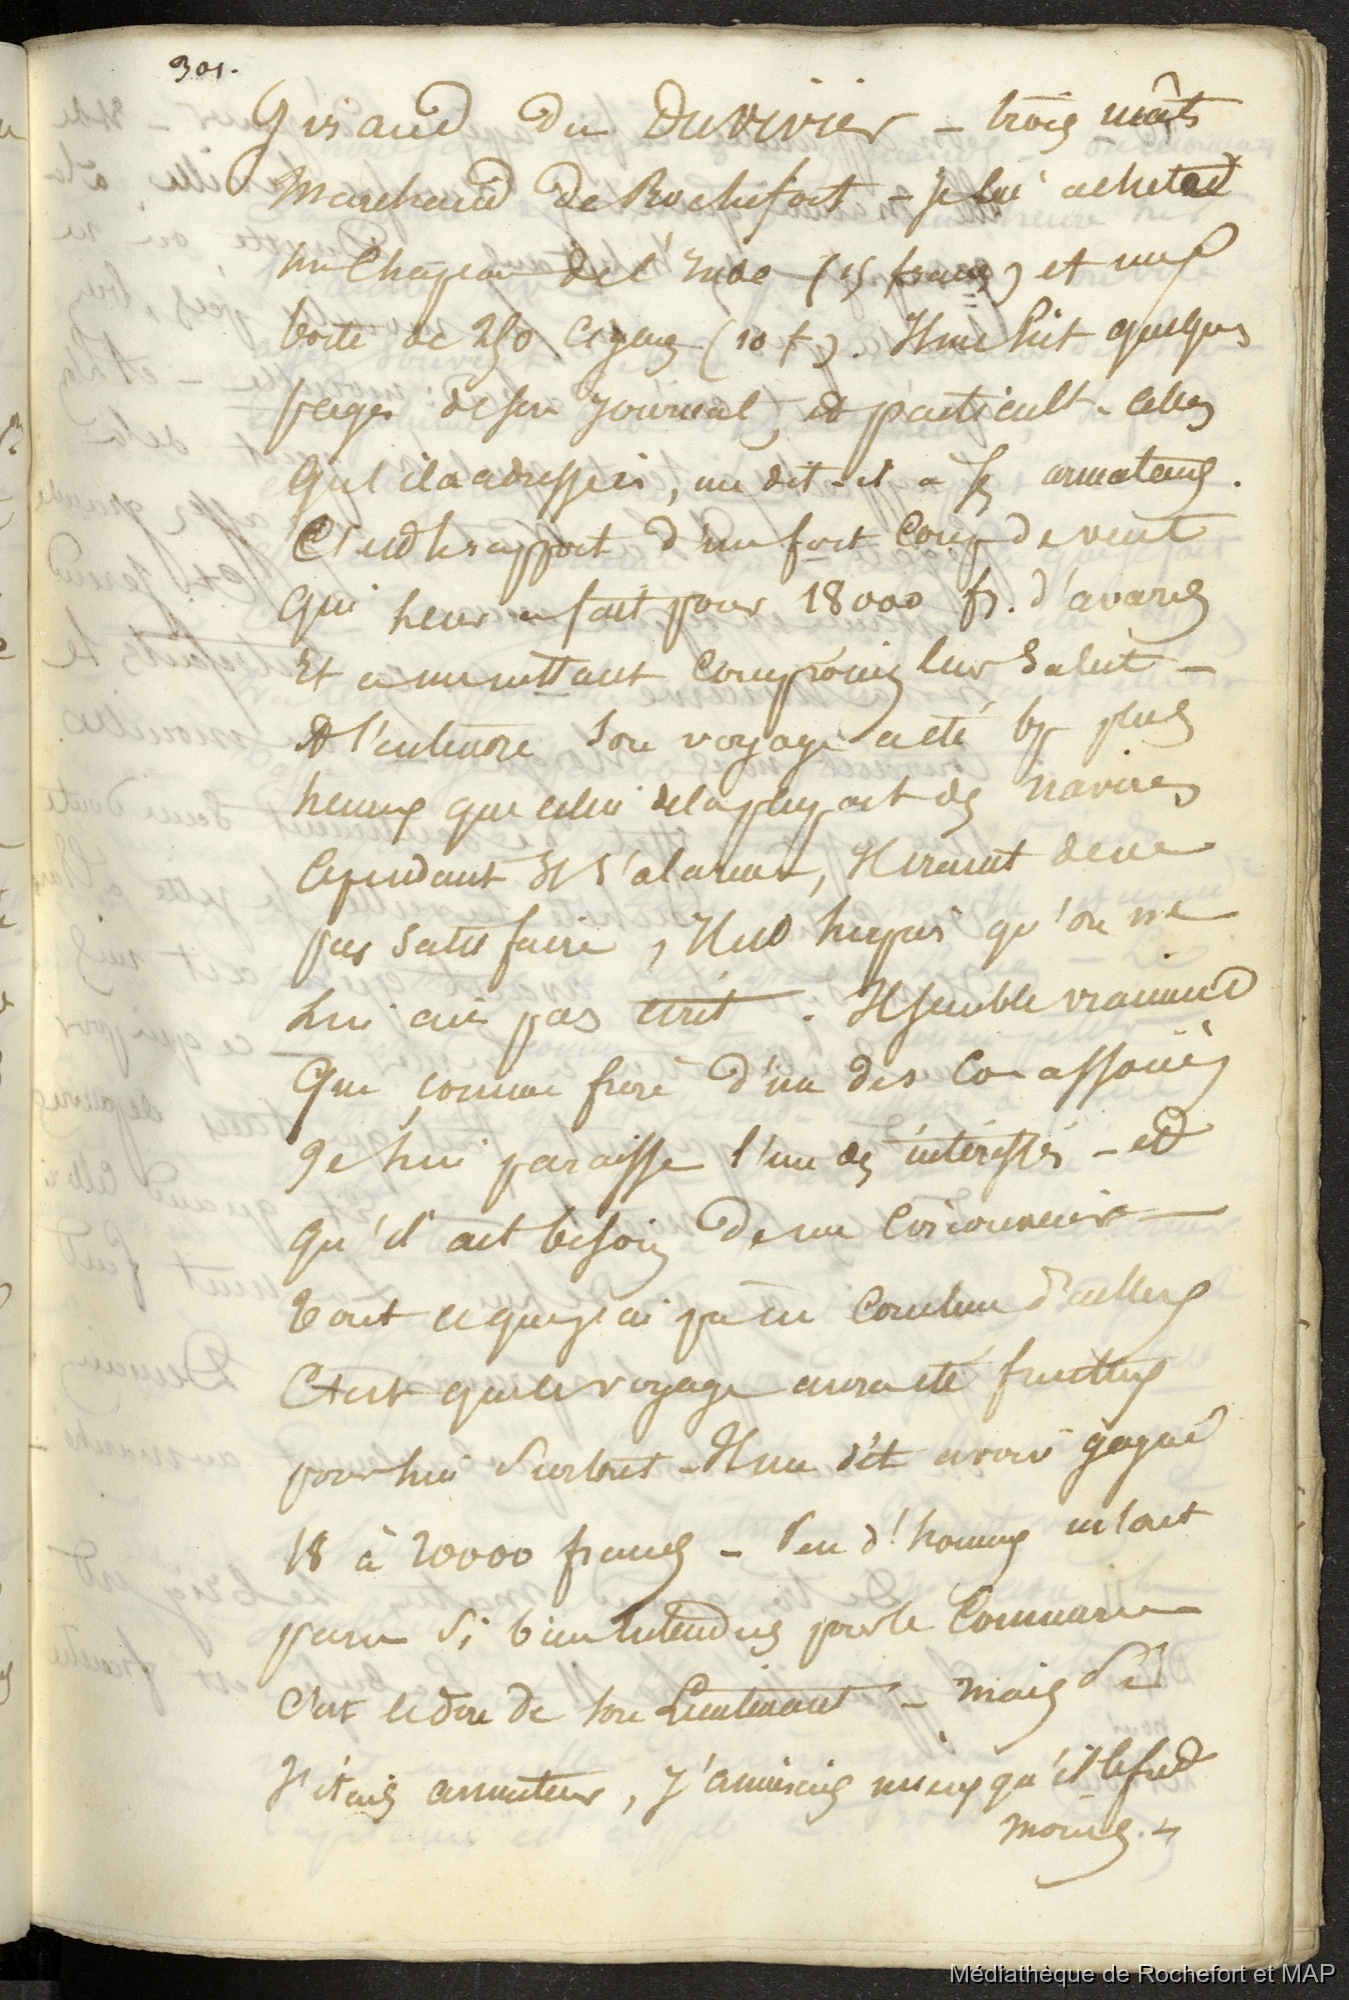 301.
Giraud du Duvivier - trois mâts
Marchand de Rochefort - je lui achetai
un Chapeau de l'Inde (15 francs) et une
boite de 250 Cigares (10 f). Il me lut quelques
pages de son journal, et particult. celles
qu'il a adressées, me dit-il à ses armateurs.
C'est le rapport d'un fort coup de vent
qui leur a fait pour 18000 fr. d'avaries
Et a un instant compromis leur Salut -
A l'entendre son voyage a été bp plus
heureux que celui de la plupart des navires
Cependant Il s'alarme, Il craint de ne
pas satisfaire, Il est surpris qu'on ne
lui ait pas écrit. Il semble vraiment
Que comme frère d'un des Co-associés
Je lui paraisse l'un des intéressés - et
Qu'il ait besoin de me circonvenir -
Tout ce que j'ai pu en conclure d'ailleurs
C'est que le voyage aura été fructueux
pour lui surtout - Il me dit avoir gagné
18 à 20000 francs - Peu d'hommes m'ont
paru si bien entendus pour le Commerce
C'est le dire de son Lieutenant - Mais si
J'étais armateur, j'aimerais mieux qu'il le fut
moins. -
Médiathèque de Rochefort et MAP